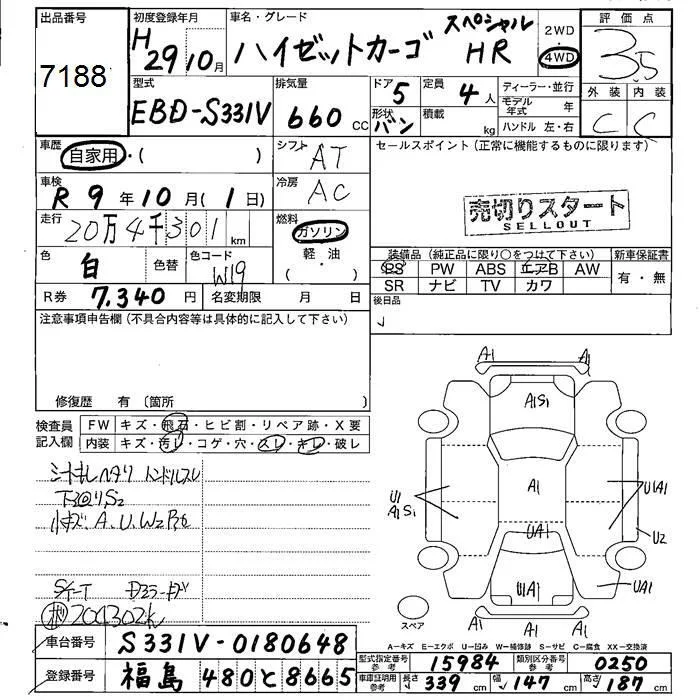 出品番号
7188
初度登録年月
H 29 10月
車名・グレード
ハイゼットカーゴ スペシャル HR
2WD
4WD
評価点
3.5
外装 内装
C C
型式
EBD-S331V
排気量
660 CC
ドア 5
形状 バン
定員 4人
積載 kg
ディーラー・並行
モデル年式 年
ハンドル 左・右
車歴
自家用・( )
シフト
AT
セールスポイント(正常に機能するものに限ります)
車検
R 9年10月(1日)
冷房
AC
売切りスタート
SELLOUT
走行
20万4千301km
燃料
ガソリン
軽・油
( )
色
白
色替
色コード
W19
装備品(純正品に限り○をつけて下さい)
新車保証書
PS PW ABS エアB AW
有・無
SR ナビ TV カワ
R券 7,340円
名変期限 月 日
後日品
注意事項申告欄(不具合内容等は具体的に記入して下さい)
修復歴 有〔箇所 〕
検査員記入欄
FW キズ・飛石・ヒビ割・リペア跡・X要
内装 キズ・汚レ・コゲ・穴・スレ・キレ・破レ
シートキレヘタリ ハンドルスレ
小キズ A.U.W2
204302k
A1 A1
A1S1
A1
UA1
U1A1
U1
A1S1
U1A1
U2
UA1
A1 A1 A1
スペア
A=キズ E=エクボ U=凹み W=補修跡 S=サビ C=腐食 XX=交換済
車台番号
S331V-0180648
登録番号
福島 480と8665
型式指定番号 参考
15984
類別区分番号 参考
0250
車庫証明用 参考
長さ 339cm 幅 147cm 高さ 187cm